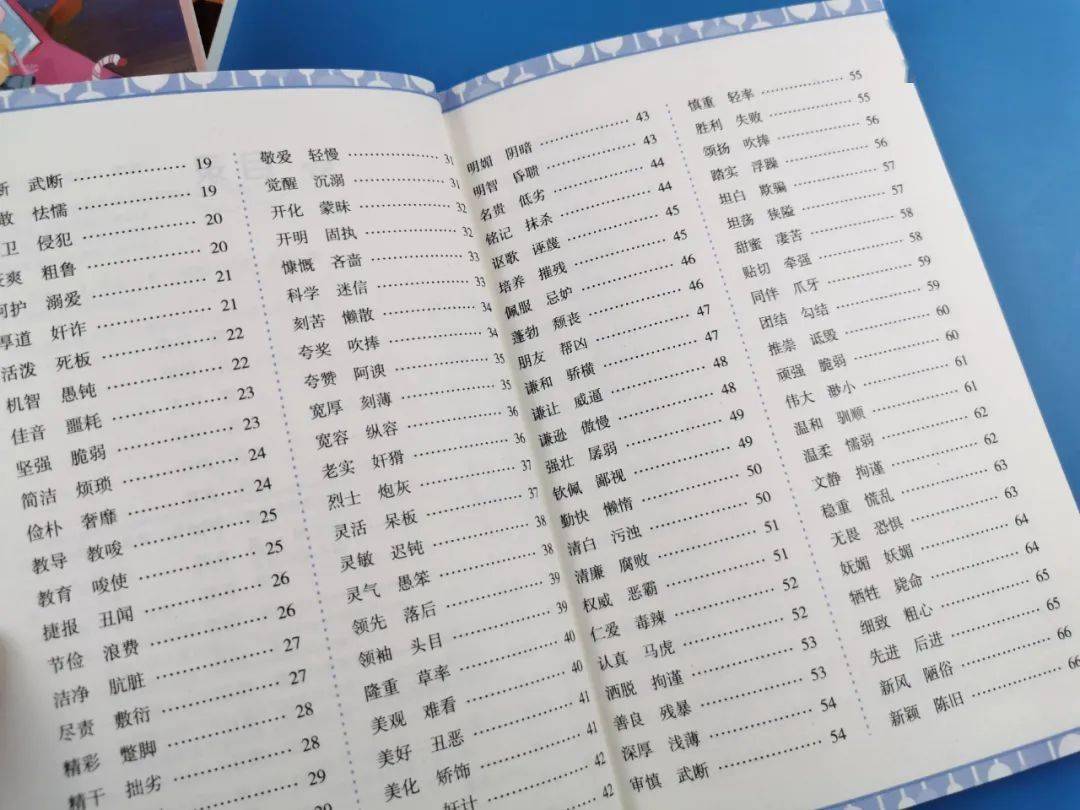 武断 …… 19
敢 怯懦 …… 19
卫 侵犯 …… 20
爽 粗鲁 …… 20
呵护 溺爱 …… 21
厚道 奸诈 …… 21
活泼 死板 …… 22
机智 愚钝 …… 22
佳音 噩耗 …… 23
坚强 脆弱 …… 23
简洁 烦琐 …… 24
俭朴 奢靡 …… 24
教导 教唆 …… 25
教育 唆使 …… 25
捷报 丑闻 …… 26
节俭 浪费 …… 26
洁净 肮脏 …… 27
尽责 敷衍 …… 27
精彩 蹩脚 …… 28
精干 拙劣 …… 28
29
敬爱 轻慢 …… 31
觉醒 沉溺 …… 31
开化 蒙昧 …… 32
开明 固执 …… 32
慷慨 吝啬 …… 33
科学 迷信 …… 33
刻苦 懒散 …… 34
夸奖 吹捧 …… 34
夸赞 阿谀 …… 35
宽厚 刻薄 …… 35
宽容 纵容 …… 36
老实 奸猾 …… 36
烈士 炮灰 …… 37
灵活 呆板 …… 37
灵敏 迟钝 …… 38
灵气 愚笨 …… 38
领先 落后 …… 39
领袖 头目 …… 39
隆重 草率 …… 40
美观 难看 …… 40
美好 丑恶 …… 41
美化 矫饰 …… 41
奸计 …… 42
明媚 阴暗 …… 43
明智 昏聩 …… 43
名贵 低劣 …… 44
铭记 抹杀 …… 44
讴歌 诬蔑 …… 45
培养 摧残 …… 45
佩服 忌妒 …… 46
蓬勃 颓丧 …… 46
朋友 帮凶 …… 47
谦和 骄横 …… 47
谦让 威逼 …… 48
谦逊 傲慢 …… 48
强壮 孱弱 …… 49
钦佩 鄙视 …… 49
勤快 懒惰 …… 50
清白 污浊 …… 50
清廉 腐败 …… 51
权威 恶霸 …… 51
仁爱 毒辣 …… 52
认真 马虎 …… 52
洒脱 拘谨 …… 53
善良 残暴 …… 53
深厚 浅薄 …… 54
审慎 武断 …… 54
慎重 轻率 …… 55
胜利 失败 …… 55
颂扬 吹捧 …… 56
踏实 浮躁 …… 56
坦白 欺骗 …… 57
坦荡 狭隘 …… 57
甜蜜 凄苦 …… 58
贴切 牵强 …… 58
同伴 爪牙 …… 59
团结 勾结 …… 59
推崇 诋毁 …… 60
顽强 脆弱 …… 60
伟大 渺小 …… 61
温和 驯顺 …… 61
温柔 懦弱 …… 62
文静 拘谨 …… 62
稳重 慌乱 …… 63
无畏 恐惧 …… 63
妩媚 妖媚 …… 64
牺牲 毙命 …… 64
细致 粗心 …… 65
先进 后进 …… 65
新风 陋俗 …… 66
新颖 陈旧 …… 66